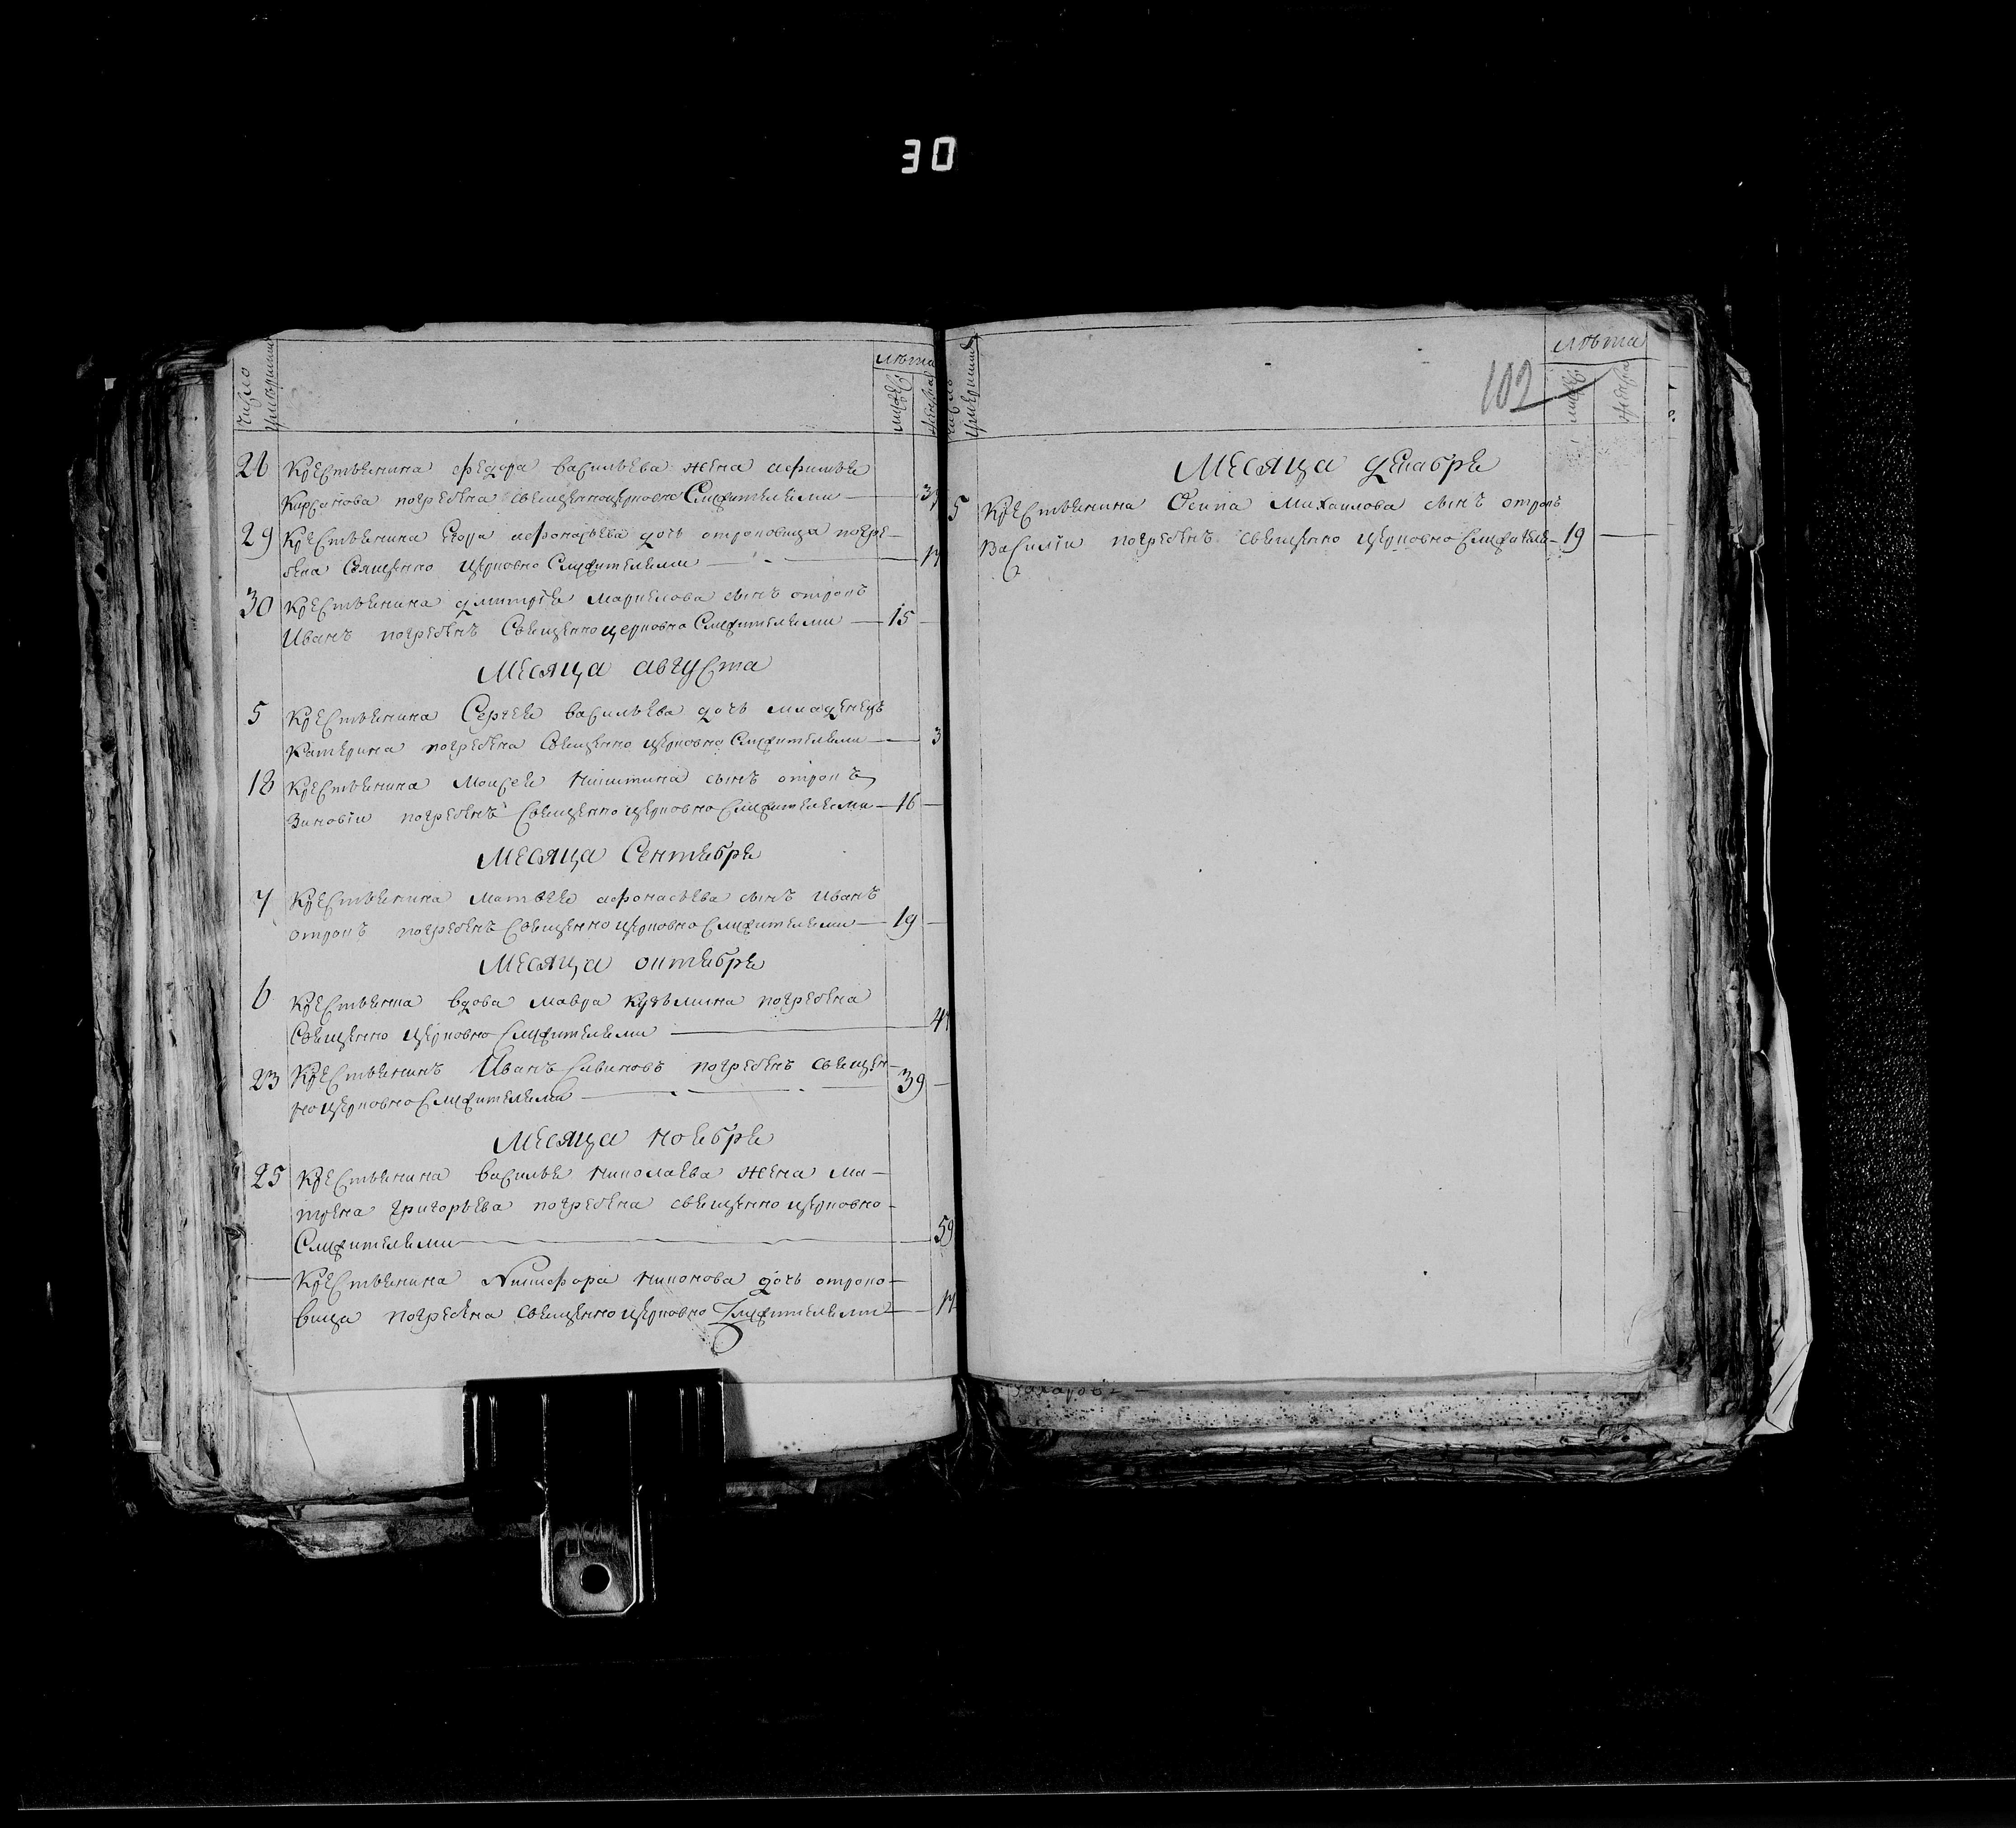 30
Число умершихъ
лѣта
мужес женска
26 Крестьянина Федора Васильева жена афимья
Карсанова погребена свещенноцерковно Служителями — 3
29 Крестьянина Егора афонасьева дочь отроковица погре-
бена Священно церковно Служителями — 1
30 Крестьянина дмитрея Маркелова сынъ отрокъ
Иванъ погребенъ Свещенноцерковно Служителями — 15 —
Месяца августа
5 Крестьянина Сергея васильева дочь младенецъ
Катерина погребена Свещенно церковно Служителями — 3
18 Крестьянина Моисея Никитина сынъ отрокъ
Зиновiи погребенъ Свещенно церковно Служителями — 16 —
Месяца Сентебря
7 Крестьянина матвея афонасьева сынъ иванъ
отрокъ погребенъ Свещенно церковно Служителями — 19 —
Месяца октебря
6 Крестьянка вдова мавра кузьмина погребена
Свещенно церковно Служителями — 4
23 Крестьянинъ Иванъ Савиновъ погребенъ свещен-
но церковно Служителями — 39 —
Месяца ноебря
25 Крестьянина василья николаева жена ма-
трена григорьева погребена свещенно церковно-
Служителями — 59
— Крестьянина Никифора никонова дочь отроко-
вица погребена свещенно церковно Служителями — 1
число умершихъ
102
лѣта
мужес женска
Месяца декабря
5 Крестьянина Осипа Михаилова сынъ отрокъ
Василiи погребенъ свещенно церковно Служителе- 19 —